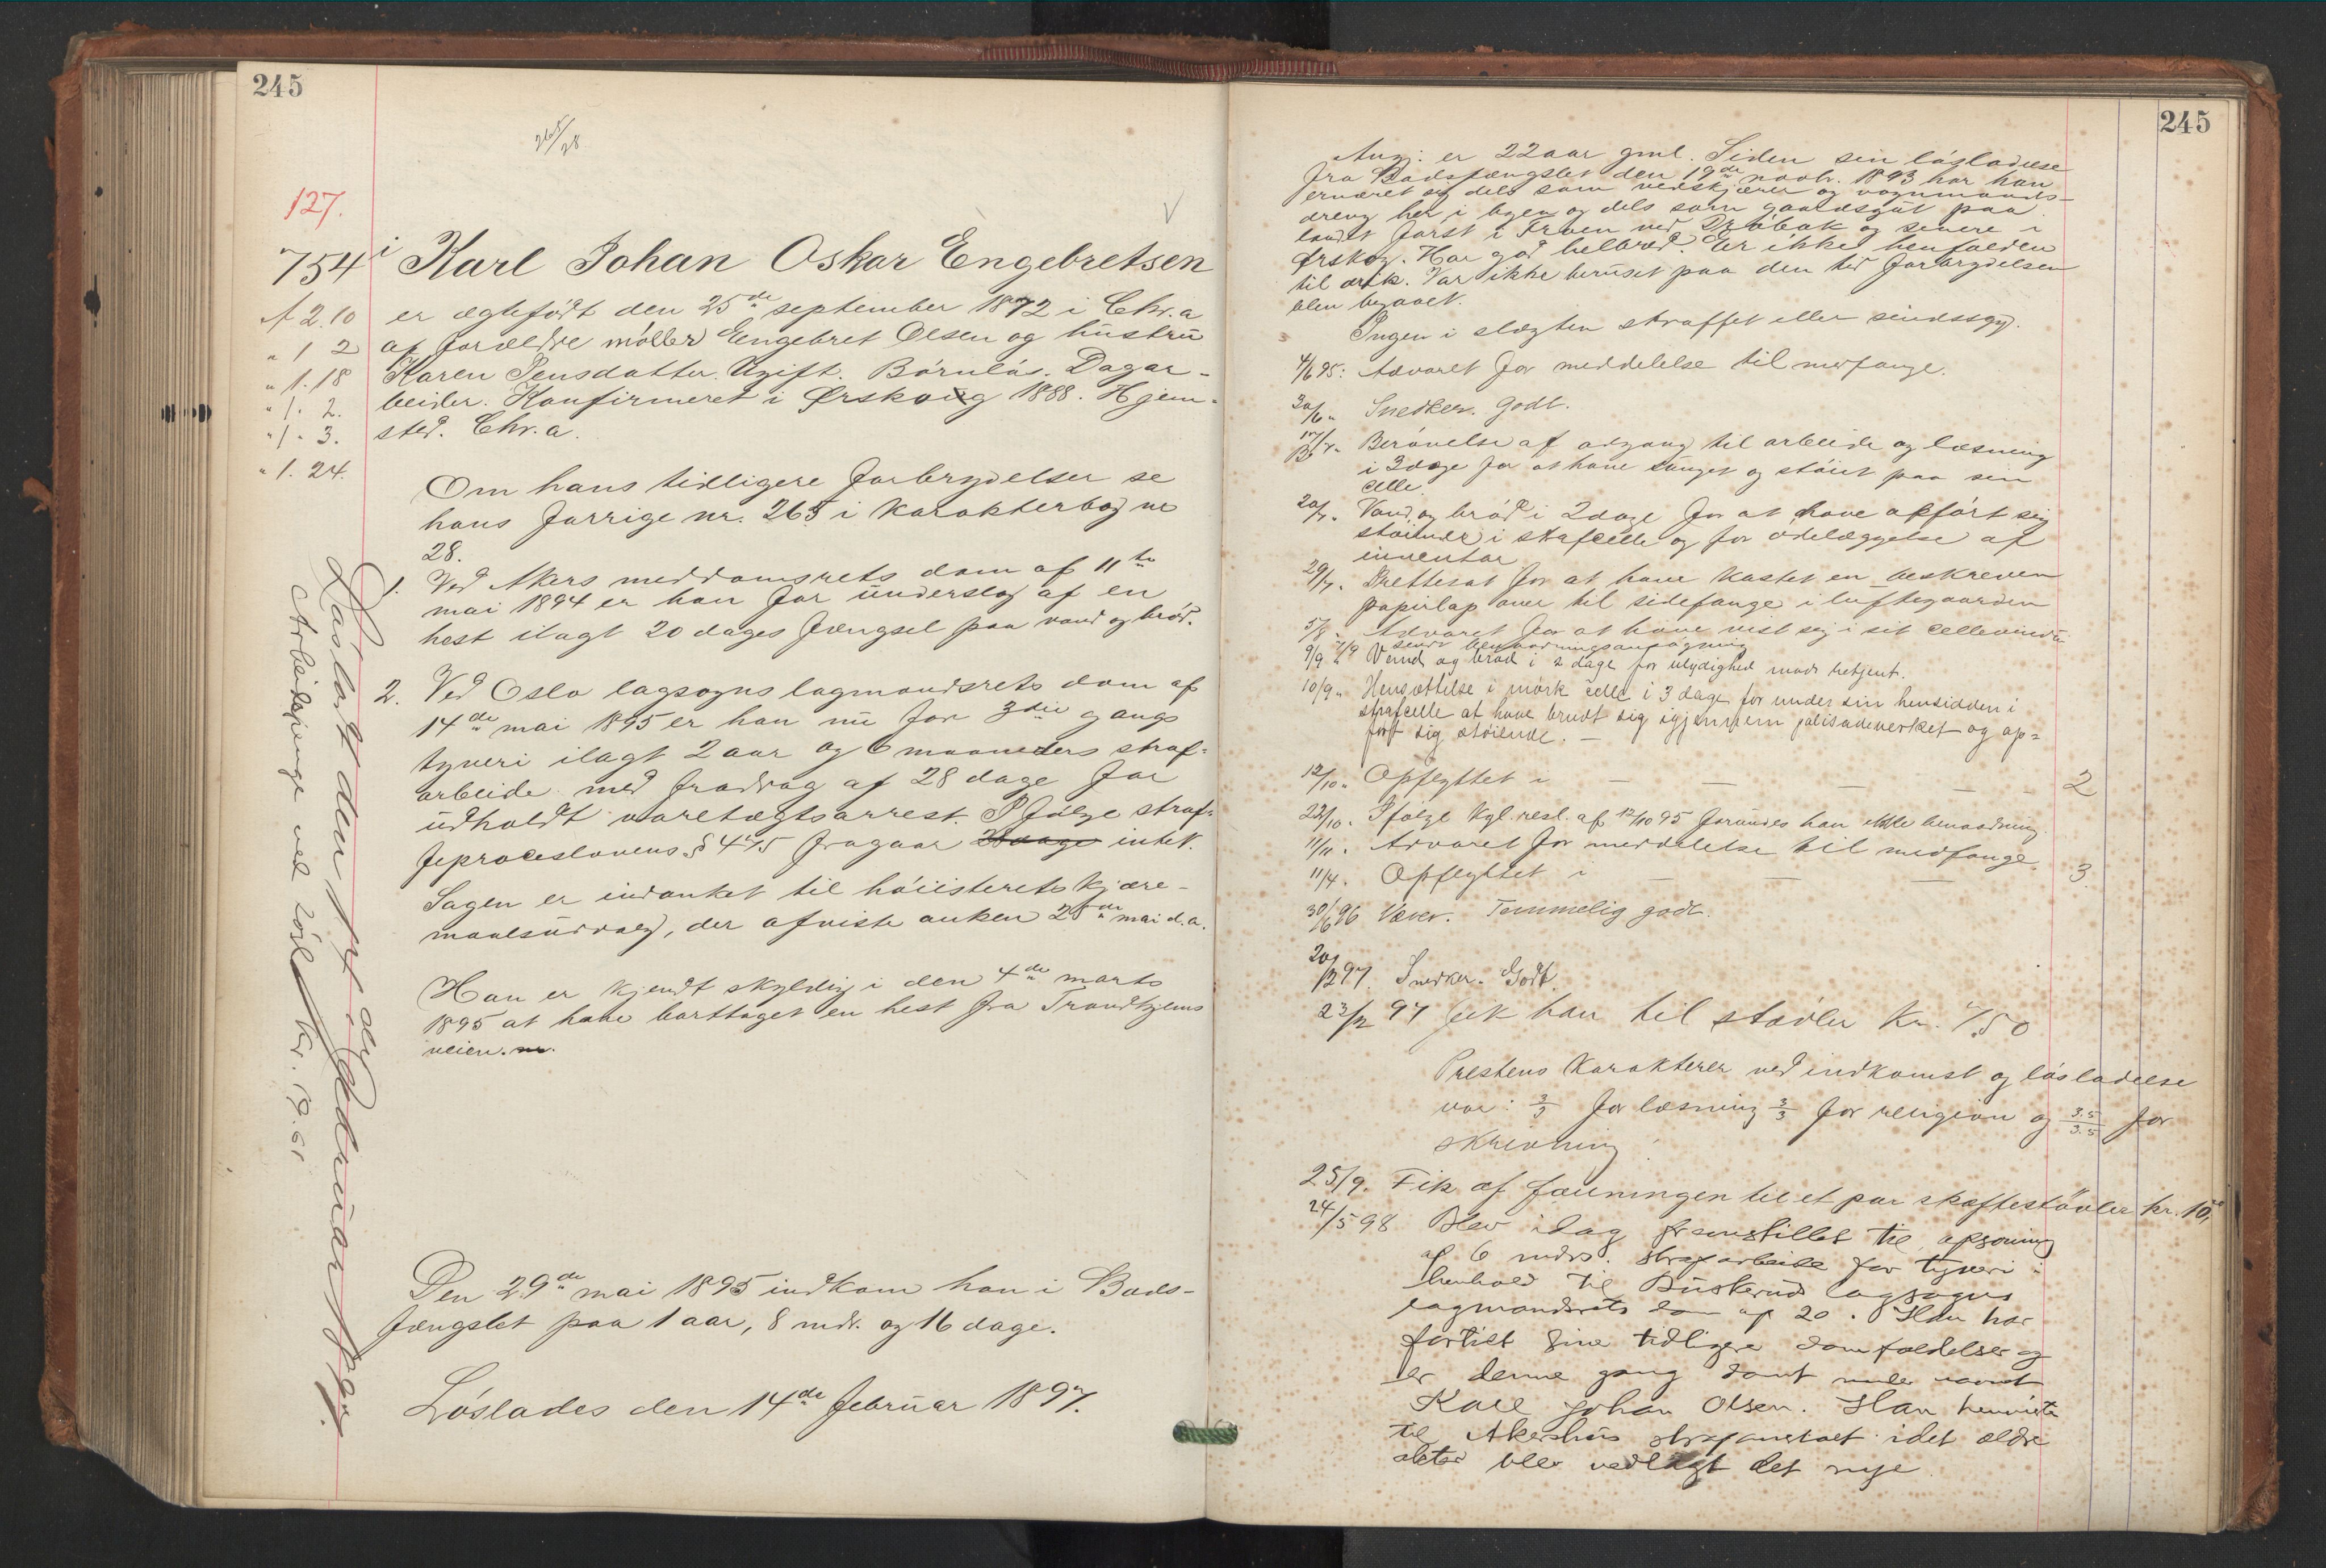 245
265/28
127.
754 i Karl Johan Oskar Engebretsen
A 2.10 er ægtefødt den 25de september 1872 i Chr.a
" 1 2 af forældre møller Engebret Olsen og hustru
" 1.18 Karen Jensdatter. Ugift. Barnløs. Dagar-
" 1. 2. beider. Konfirmeret i Ørskog 1888. Hjem-
" 1. 3. sted. Chr.a.
" 1. 24.
Om hans tidligere forbrydelser se
hans forrige nr. 265 i karakterbog no
28.
1. Ved Akers meddomsrets dom af 11te
mai 1894 er han for underslag af en
hest ilagt 20 dages fængsel paa vand og brød.
2. Ved Oslo lagsogns lagmandsrets dom af
14de mai 1895 er han nu for 3die gangs
tyveri ilagt 2 aar og 6 maaneders straf=
arbeide med fradrag af 28 dage for
udholdt varetægtsarrest. Ifølge straf=
feproceslovens § 475 fragaar 2 dage intet.
Sagen er indanket til høiisterets kjære-
maalsudvalg, der afviste anken 25de mai d.a.
Han er kjendt skyldig i den 4de marts
1895 at have borttaget en hest fra Trondhjems
veien.
Den 29de mai 1895 indkom han i Bods-
fængslet paa 1 aar, 8 mdr. og 16 dage.
Løslades den 14de februar 1897.
Løsladt den 14de februar 1897.
Arbeidspenge ved løsl. kr. 19.61
245
Angj. er 22 aar gml. Siden sin løsladelse
fra Bodsfængslet den 19de novbr. 1893 har han
ernæret sig dels som vedskjærer og vognmands-
dreng her i byen og dels som gaardsgut paa
landet først i Froen ved Drøbak og senere i
Ørskog. Har god helbred. Er ikke henfalden
til drik. Var ikke beruset paa den tid forbrydelsen
blev begaaet.
Ingen i slægten straffet eller sindssyg.
4/6 95: Advaret for meddelelse til medfange.
30/6 " Snedker. Godt.
17/7 " Berøvelse af adgang til arbeide og læsning
i 3 dage for at have sunget og støiet paa sin
celle.
20/7 " Vand og brød i 2 dage for at have opført sig
støiende i strafcelle og for ødelæggelse af
inventar
29/7 " Irettesat for at have kastet en beskreven
papirlap over til sidefange i luftegaarden
5/8 " Advaret for at have vist sig i sit cellevindu
7/9 Sendt benaadningsansøgning
9/9 " Vand og brød i 2 dage for ulydighed mod betjent.
10/9 " Hensættelse i mørk celle i 3 dage for under sin hensidden i
strafcelle at have brudt sig igjennem palisadeverket og op=
ført sig støiende. —
12/10 " Opflyttet i — — — — 2
22/10 " Ifølge kgl. resl. af 12/10 95 forundes han ikke benaadning.
11/11 " Advaret for meddelelse til medfange.
11/4 " Opflyttet i — — — 3.
30/6 96 Væver. Temmelig godt.
20/1 297. Snedker. Godt.
23/12 97 fik han til støvler kr. 7.50
Prestens karakterer ved indkomst og løsladelse
var: 3/3 for læsning 3/3 for religion og 3.5/3.5 for
skrivning
25/9. Fik af foreningen til et par skaftestøvler kr. 10,
24/5 98 Blev idag fremstillet til afsoning
af 6 mdrs. strafarbeide for tyveri i
henhold til Buskerud lagsogns
lagmandsrets dom af 20. Han har
fortiet sine tidligere domfældelser og
er denne gang dømt under navnet
Karl Johan Olsen. Han henviste
til Akershus strafanstalt idet ældre
akter blev vedlagt det nye.